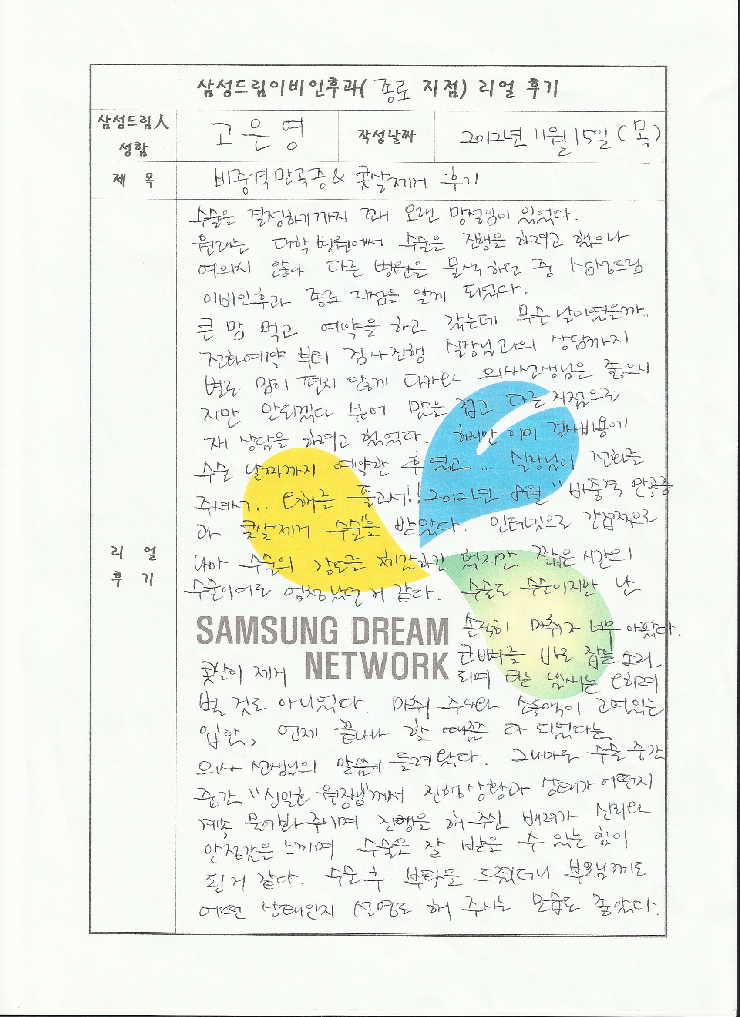 삼성드림이비인후과( 종로 지점) 리얼 후기
삼성드림人 성함
고은영
작성날짜
2012년 11월 15일 (목)
제 목
비중격만곡증 & 콧살제거 후기
리 얼 후 기
수술을 결정하기까지 꽤 오랜 망설임이 있었다.
원래는 대학병원에서 수술을 진행을 하려고 했으나
여의치 않아 다른 병원을 물색하고 중 삼성드림
이비인후과 종로 지점을 알게 되었다.
큰 맘 먹고 예약을 하고 갔는데 무슨 날이였을까..
전화예약 부터 검사진행 실장님과의 상담까지
별로 맘이 편치 않게 다가와 의사선생님은 좋으시
지만 안되겠다 싶어 맘을 접고 다른 지점으로
재 상담을 하려고 했었다. 하지만 이미 검사비용에
수술 날짜까지 예약한 후였고... 실장님이 전화를
주셔서.. 오해를 풀고서!! 2012년 "비중격 만곡증
과 콧살제거 수술"을 받았다. 인터넷으로 간접적으로
나마 수술의 강도를 체감하긴 했지만 짧은 시간의
수술이여도 엄청났던 거 같다. 수술도 수술이지만 난
솔직히 마취가 너무 아팠다.
큰뼈를 바로 잡는 소리.
SAMSUNG DREAM
NETWORK
콧살이 제거
되며 타는 냄새는 오히려
별 것도 아니였다. 마취 주사와 소독액이 고여있는
입안, 언제 끝나나 할 때쯤 다 되었다는
의사 선생님의 말씀이 들려왔다. 그나마도 수술 중간
중간 "신일호 원장님"께서 진행상황과 상태가 어떤지
계속 물어봐 주시며 진행을 해 주신 배려가 신뢰와
안정감을 느끼며 수술을 잘 받을 수 있는 힘이
된거 같다. 수술 후 부탁을 드렸더니 부모님께도
어떤 상태인지 설명도 해 주시는 모습도 좋았다.